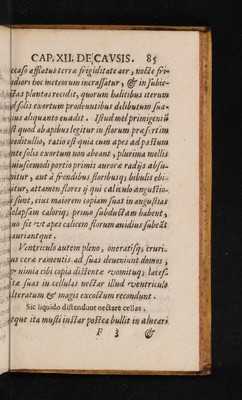 CAP. XII. DE CAVSIS. 85
occaso afflatus terræ frigiditate aer, nocte fri-
gidiori hoc meteorum incrassatur, & in subie-
ctas plantas recidit, quorum halitibus iterum
ad solis exortum prodeuntibus dilibutum sua-
uius aliquanto euadit. Istud mel primigeniū
est quod ab apibus legitur in florum præsertim
meditullio, ratio est quia cum apes ad pastum
ante solis exortum non abeant, plurima mellis
huiuscemodi portio primis auroræ radijs absu-
mitur, aut à frondibus floribusq; bibulis ebi-
bitur, attamen flores ij qui caliculo angustio-
ri sunt, eius maiorem copiam suas in angustias
delapsam caloriq; primo subductam habent,
quo fit vt apes calicem florum auidius subeāt
hauriantque.
Ventriculo autem pleno, oneratisq; cruri-
bus ceræ ramentis ad suas deueniunt domos,
& nimia cibi copia distentæ vomituq; laces-
sitæ suas in cellulas nectar illud ventriculo
alteratum & magis excoctum recondunt.
Sic liquido distendunt nectare cellas;
atque ita musti instar postea bullit in alueari
F 3 &